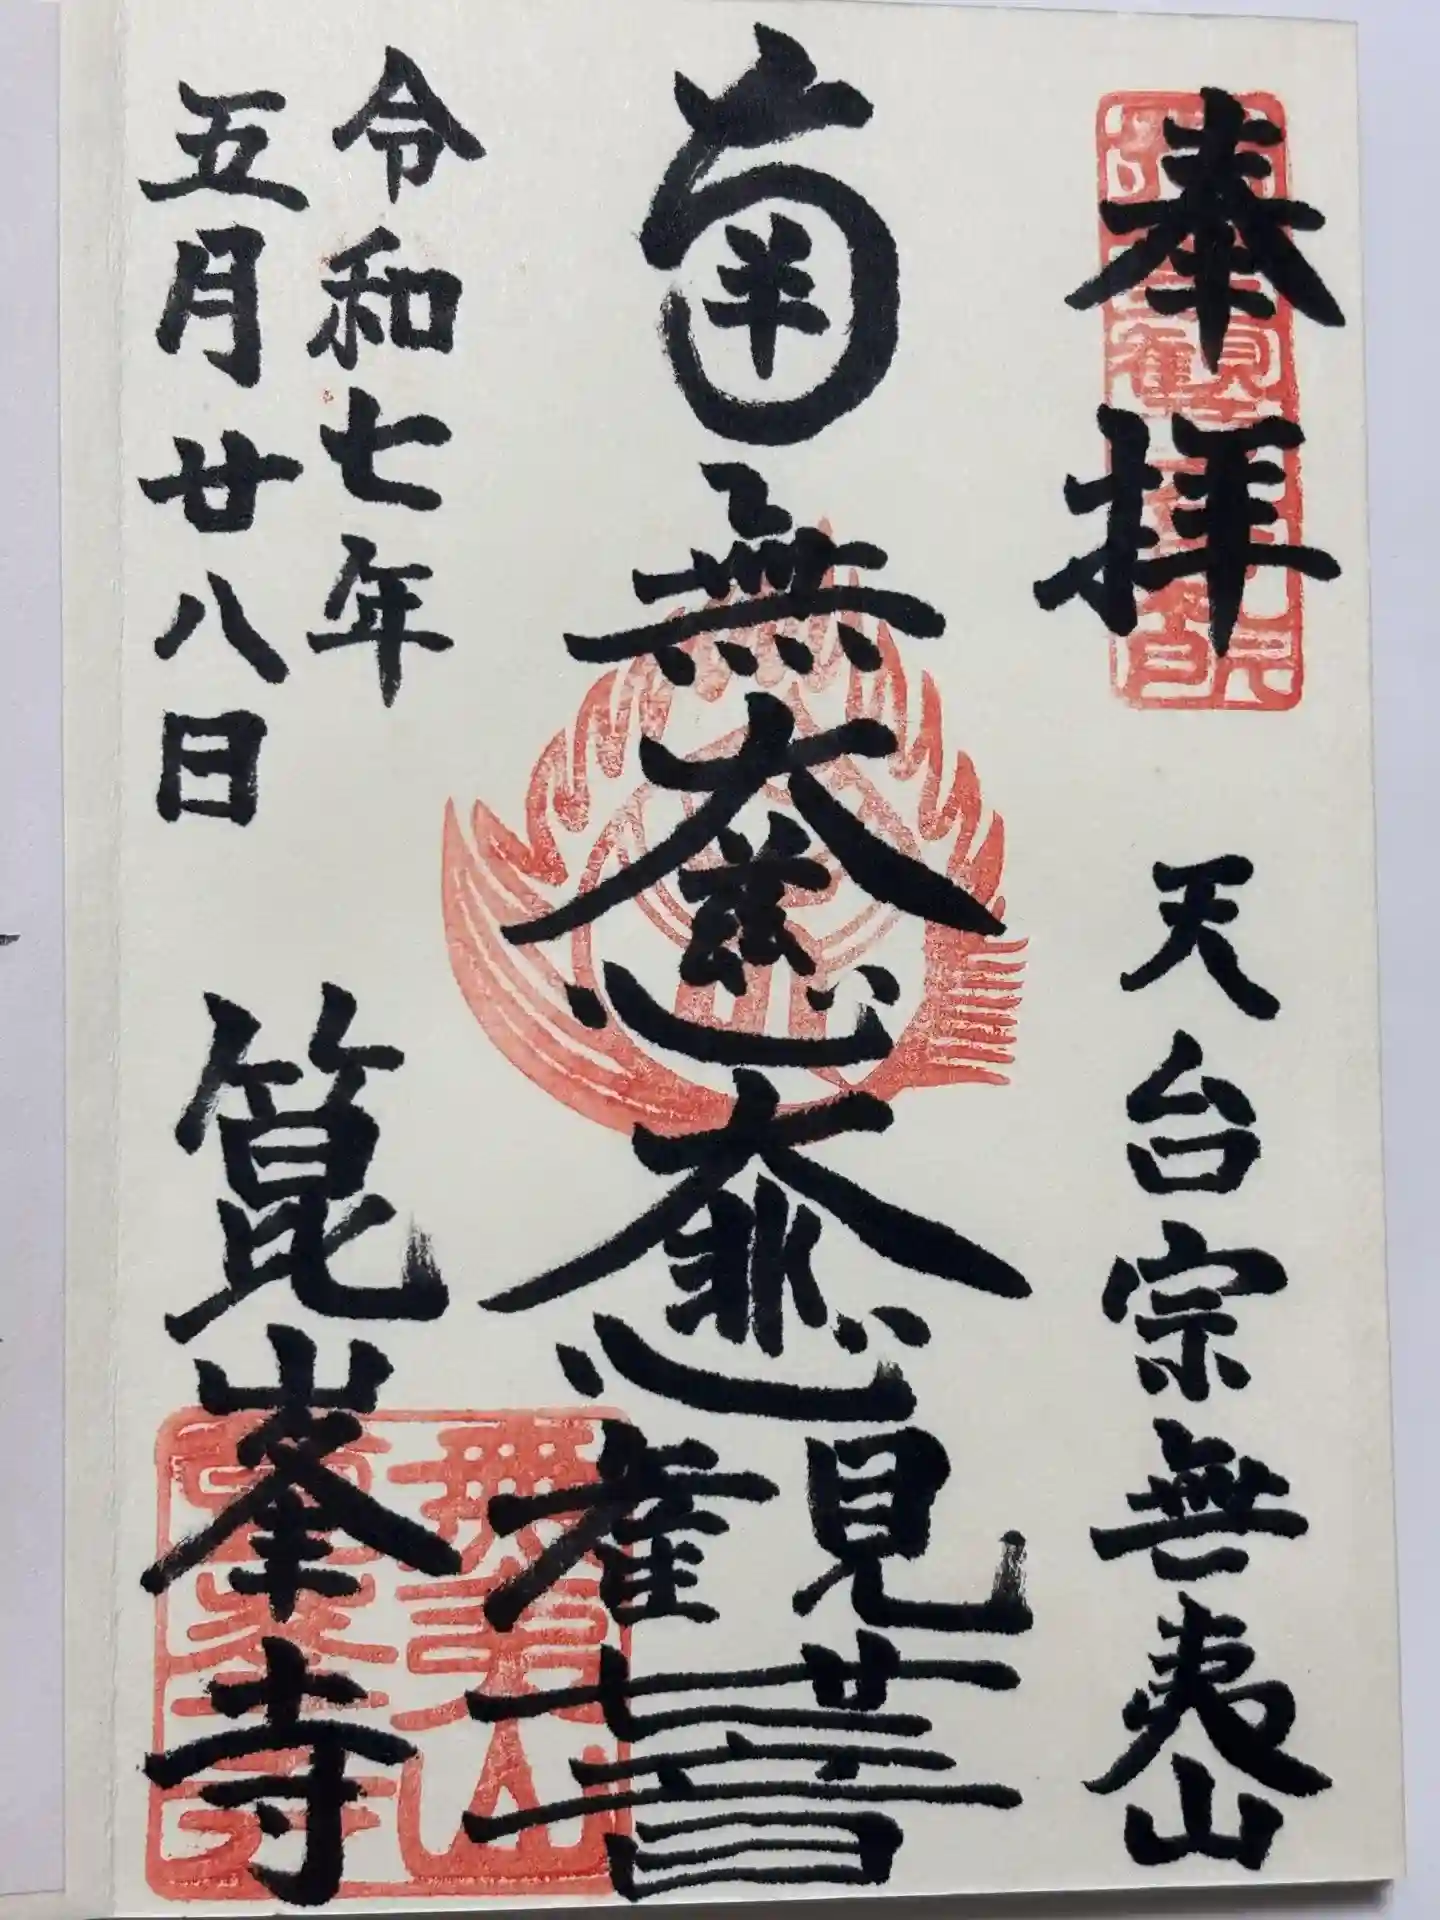 奉拝
天台宗無夷山
南無大慈大悲観世音
令和七年
五月廿八日
箟峯寺
無夷山
箟峯寺